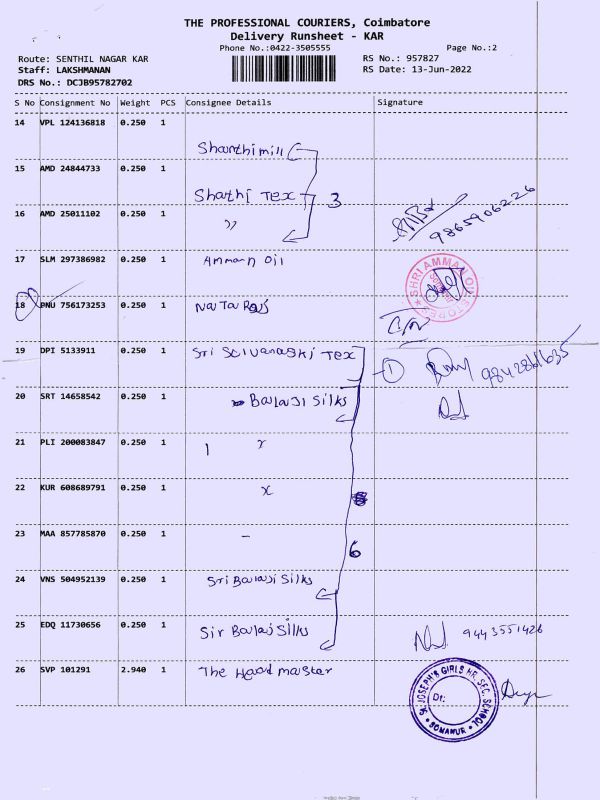 THE PROFESSIONAL COURIERS, Coimbatore
Delivery Runsheet - KAR
Phone No.:0422-3505555
Page No.:2
Route: SENTHIL NAGAR KAR
RS No.: 957827
Staff: LAKSHMANAN
RS Date: 13-Jun-2022
DRS No.: DCJB95782702
S No Consignment No Weight PCS Consignee Details Signature
14 VPL 124136818 0.250 1
Shanthi mill
15 AMD 24844733 0.250 1
Shathi Tex 3
16 AMD 25011102 0.250 1 ”
9865906226
17 SLM 297386982 0.250 1 Amman Oil
SHRI AMMAN OIL STORES
18 PNU 756173253 0.250 1 Nataraj
19 DPI 5133911 0.250 1 Sri Sivanagki Tex 1 9842861635
20 SRT 14658542 0.250 1 Balaji Silks
21 PLI 200083847 0.250 1
22 KUR 608689791 0.250 1
23 MAA 857785870 0.250 1 -
6
24 VNS 504952139 0.250 1 Sri Balaji Silks
25 EDQ 11730656 0.250 1 Sir Balaj Silks 9443551426
26 SVP 101291 2.940 1 The Head master
ST. JOSEPH'S GIRLS HR. SEC. SCHOOL
Dt:
SOMANUR